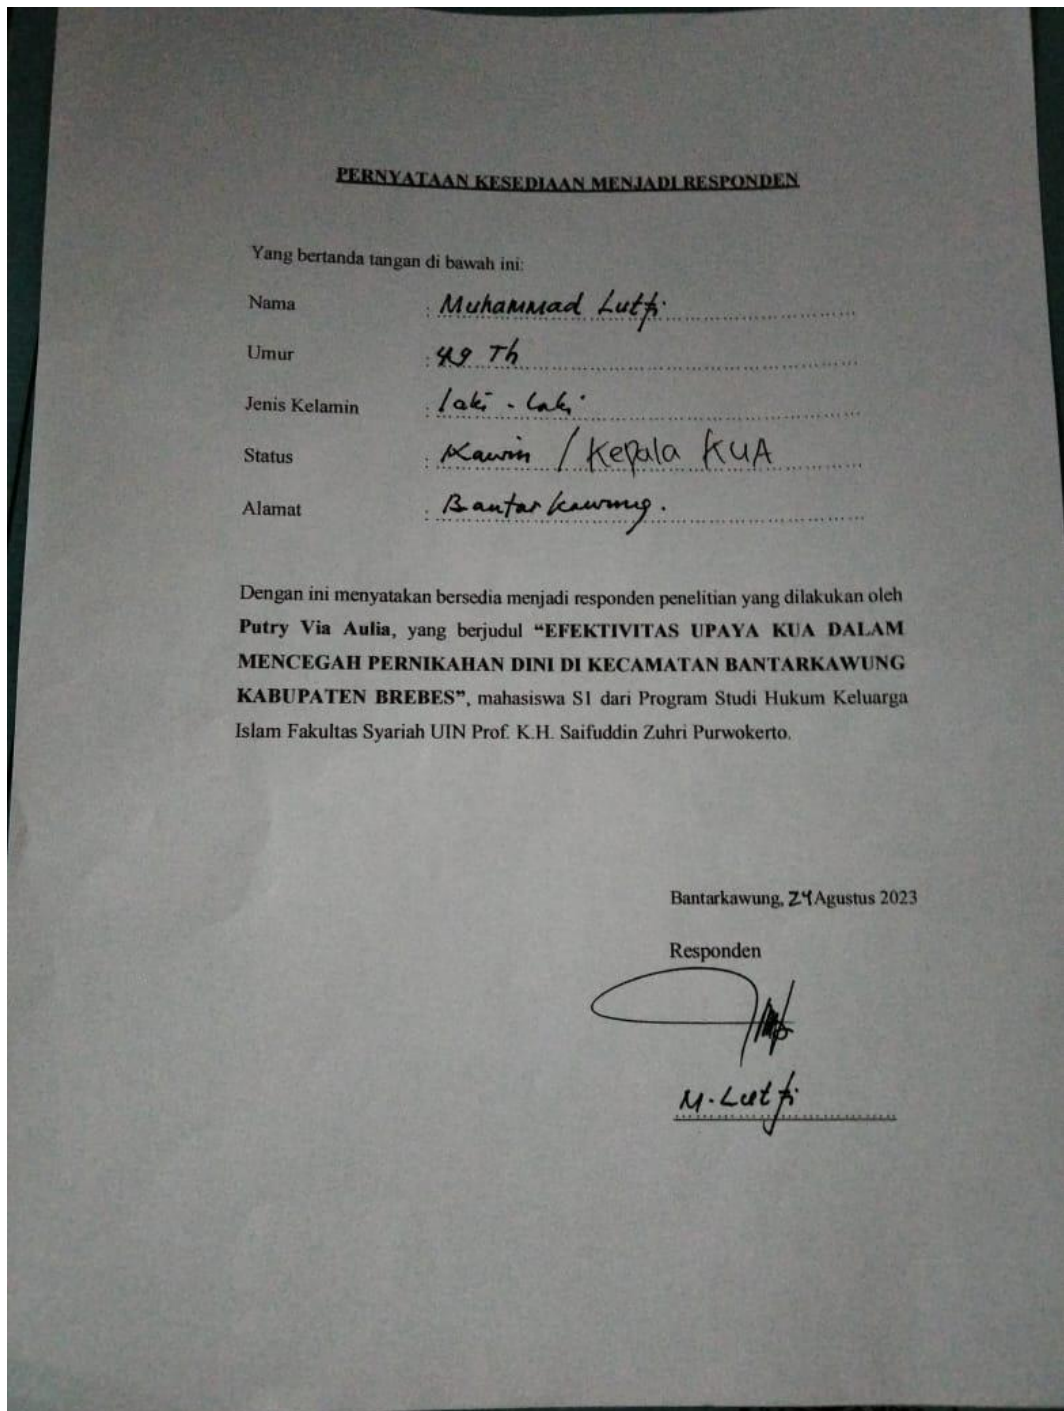 PERNYATAAN KESEDIAAN MENJADI RESPONDEN
Yang bertanda tangan di bawah ini:
Nama : Muhammad Lutfi
Umur : 49 Th
Jenis Kelamin : laki - laki
Status : Kawin / Kepala KUA
Alamat : Bantarkawung.
Dengan ini menyatakan bersedia menjadi responden penelitian yang dilakukan oleh
Putry Via Aulia, yang berjudul “EFEKTIVITAS UPAYA KUA DALAM
MENCEGAH PERNIKAHAN DINI DI KECAMATAN BANTARKAWUNG
KABUPATEN BREBES”, mahasiswa S1 dari Program Studi Hukum Keluarga
Islam Fakultas Syariah UIN Prof. K.H. Saifuddin Zuhri Purwokerto.
Bantarkawung, 24 Agustus 2023
Responden
M. Lutfi